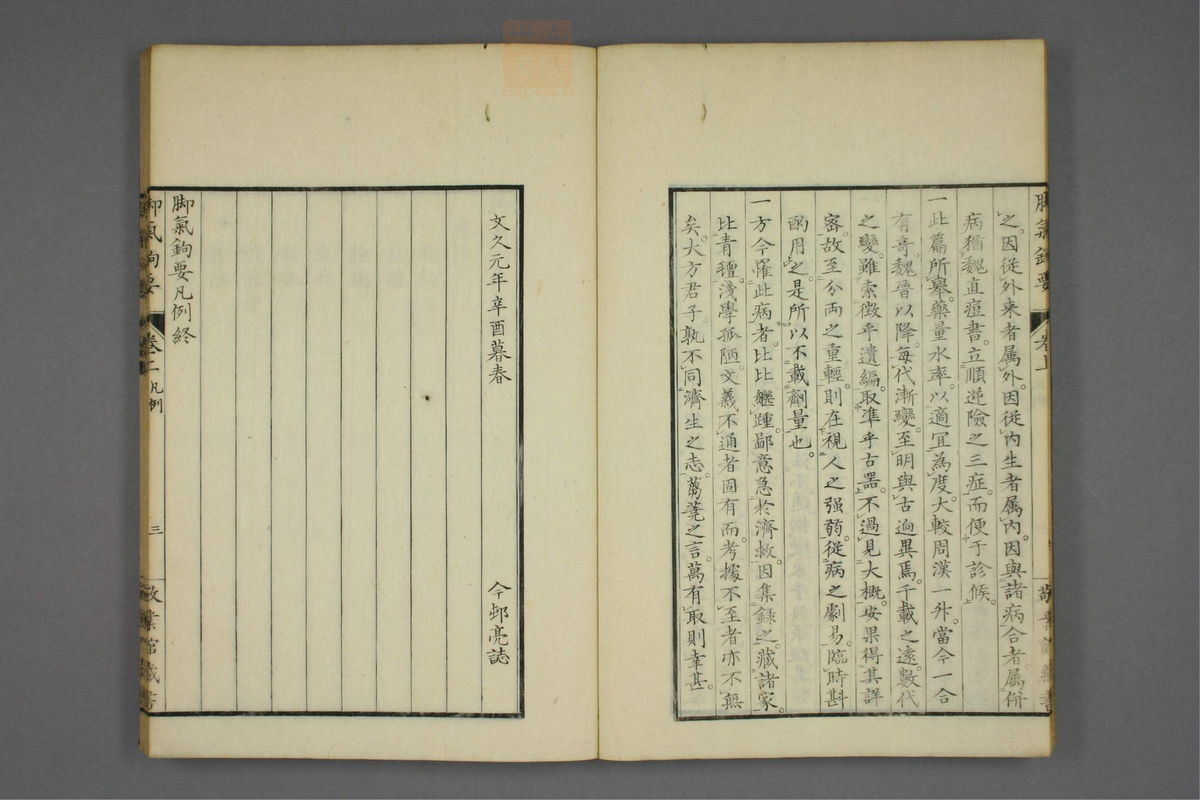 脚氣鉤要
卷上
敬業館藏書
之因從外来者属外因從内生者属内因與諸病合者属併
病猶魏直痘書立順逆險之三症而便于診候
一此篇所舉藥量水率以適宜為度大較周漢一升當今一合
有奇魏晉以降每代漸變至明與古逈異焉千載之遠數代
之變雖索徵乎遺編取準乎古器不過見大概安果得其詳
密故至分両之重輕則在視人之强弱從病之劇易臨時斟
酌用之是所以不載劑量也
一方今罹此病者比比繼踵鄙意急於濟救因集録之藏諸家
比青氊淺學孤陋文義不通者固有而考據不至者亦不無
矣大方君子孰不同濟生之志蒭蕘之言萬有取則幸甚
文久元年辛酉暮春
今邨亮誌
脚氣鉤要凡例終
脚氣鉤要
卷上
凡例
三
敬業館藏書